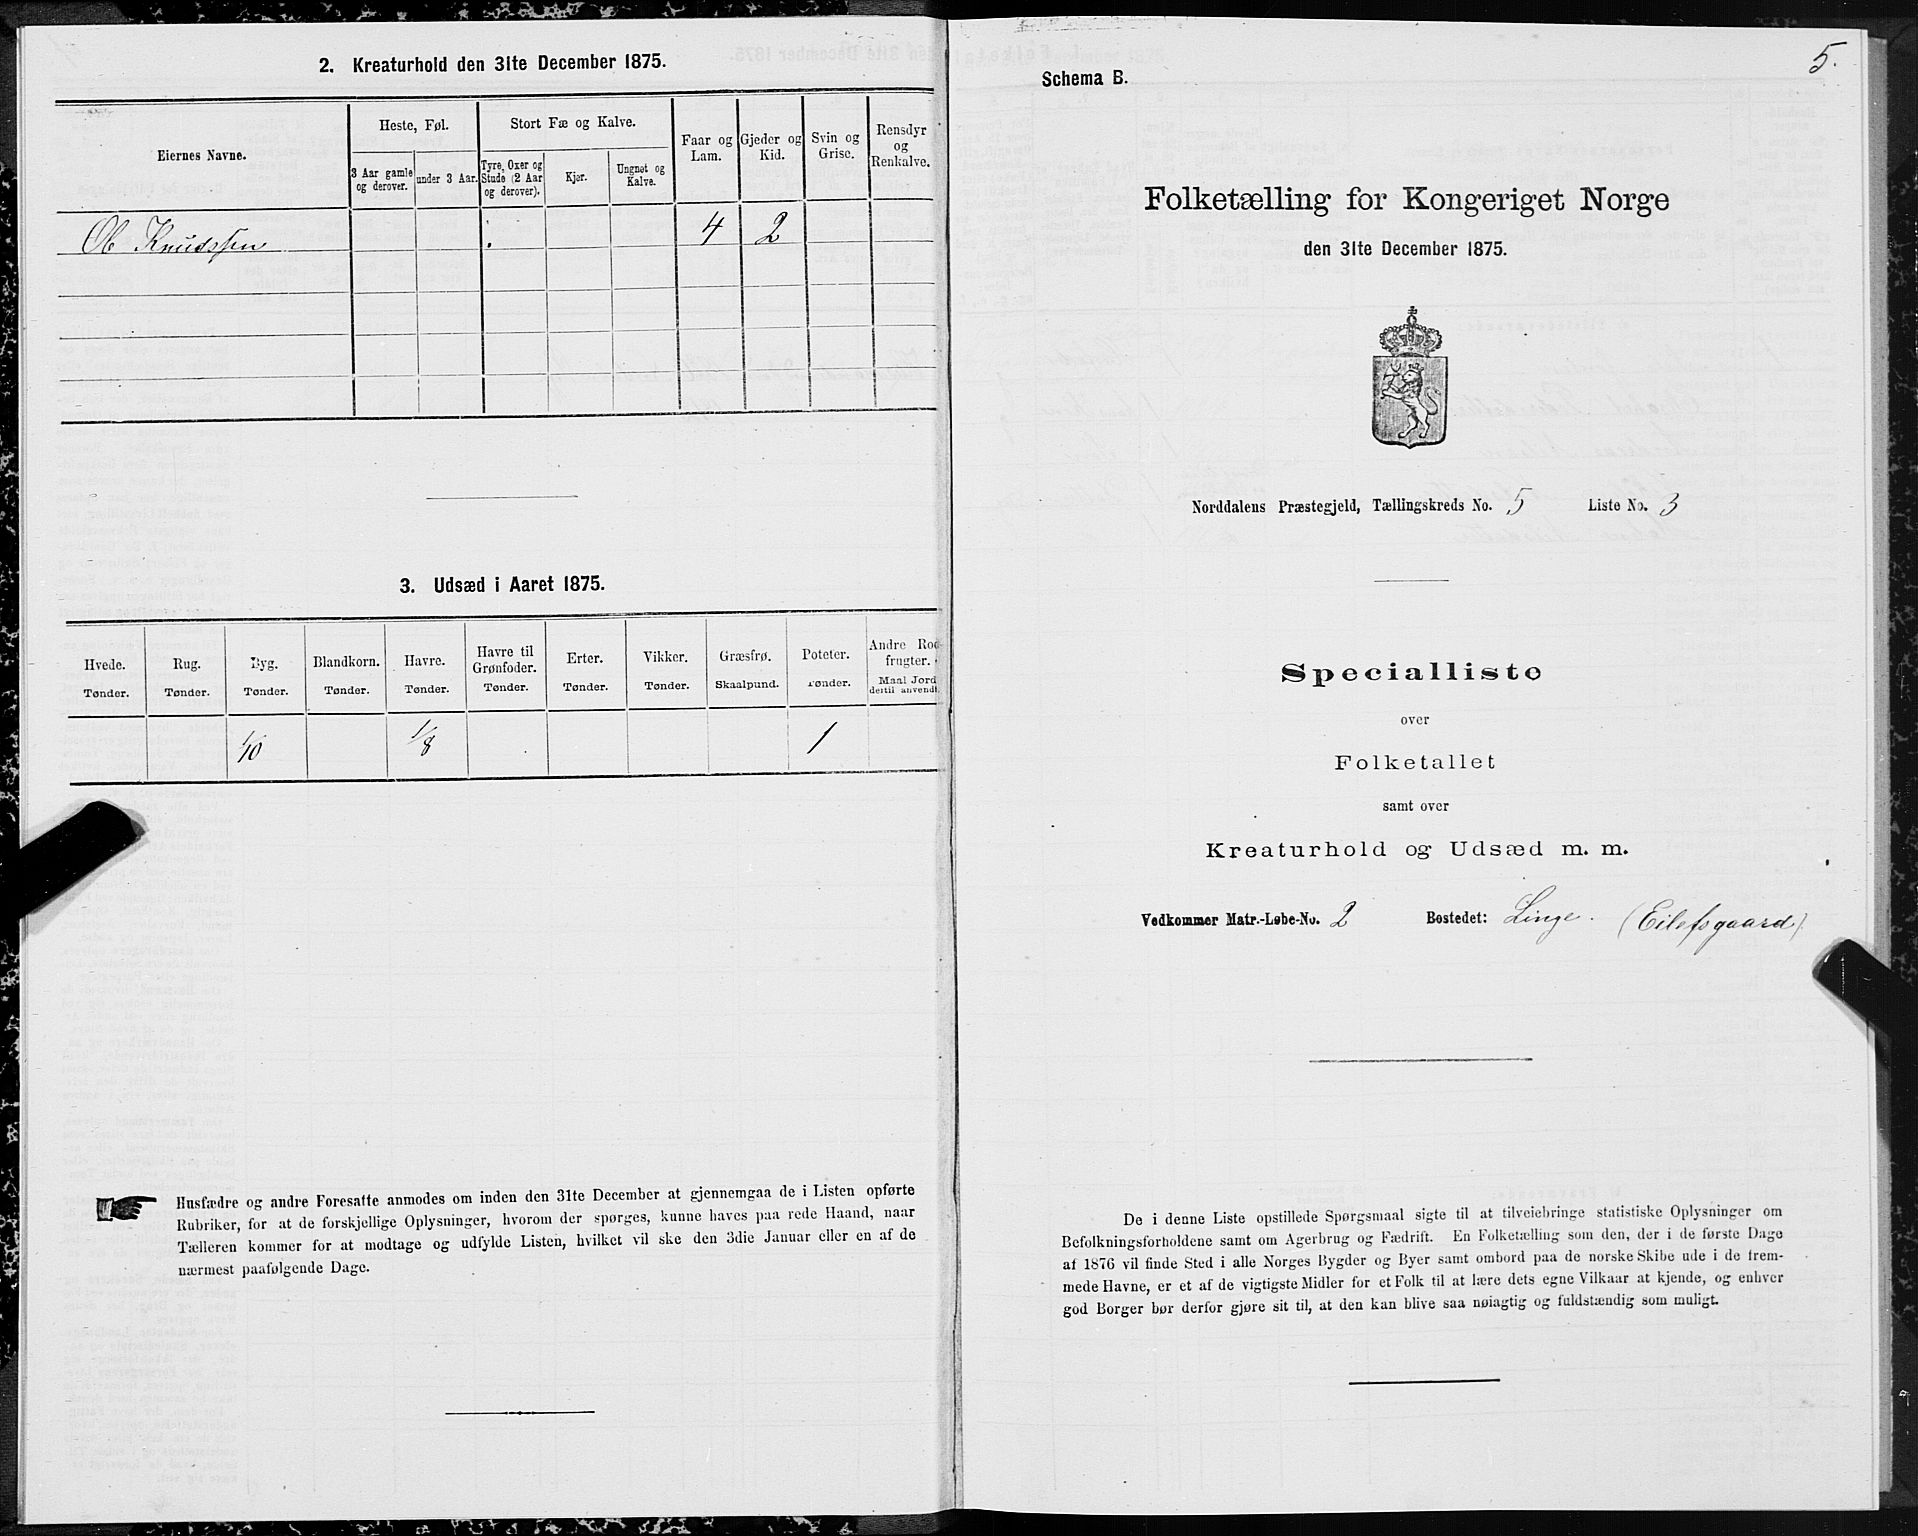 2. Kreaturhold den 31te December 1875.
Eiernes Navne.
Heste, Føl.
3 Aar gamle og derover.
under 3 Aar.
Stort Fæ og Kalve.
Tyre, Oxer og Stude (2 Aar og derover).
Kjør.
Ungnøt og Kalve.
Faar og Lam.
Gjeder og Kid.
Svin og Grise.
Rensdyr og Renkalve.
Ol Knudssen 4 2
3. Udsæd i Aaret 1875.
Hvede. Rug. Byg. Blandkorn. Havre. Havre til Grønfoder. Erter. Vikker. Græsfrø. Poteter. Andre Rodfrugter.
Tønder. Tønder. Tønder. Tønder. Tønder. Tønder. Tønder. Tønder. Skaalpund. Tønder. Maal Jord dertil anvendt.
1/10 1/8 1
Husfædre og andre Foresatte anmodes om inden den 31te December at gjennemgaa de i Listen opførte
Rubriker, for at de forskjellige Oplysninger, hvorom der spørges, kunne haves paa rede Haand, naar
Tælleren kommer for at modtage og udfylde Listen, hvilket vil ske den 3die Januar eller en af de
nærmest paafølgende Dage.
5.
Schema B.
Folketælling for Kongeriget Norge
den 31te December 1875.
Norddalens Præstegjeld, Tællingskreds No. 5 Liste No. 3
Specialliste
over
Folketallet
samt over
Kreaturhold og Udsæd m. m.
Vedkommer Matr.-Løbe-No. 2 Bostedet: Linge. (Eilefsgaard)
De i denne Liste opstillede Spørgsmaal sigte til at tilveiebringe statistiske Oplysninger om
Befolkningsforholdene samt om Agerbrug og Fædrift. En Folketælling som den, der i de første Dage
af 1876 vil finde Sted i alle Norges Bygder og Byer samt ombord paa de norske Skibe ude i de frem-
mede Havne, er et af de vigtigste Midler for et Folk til at lære dets egne Vilkaar at kjende, og enhver
god Borger bør derfor gjøre sit til, at den kan blive saa nøiagtig og fuldstændig som muligt.